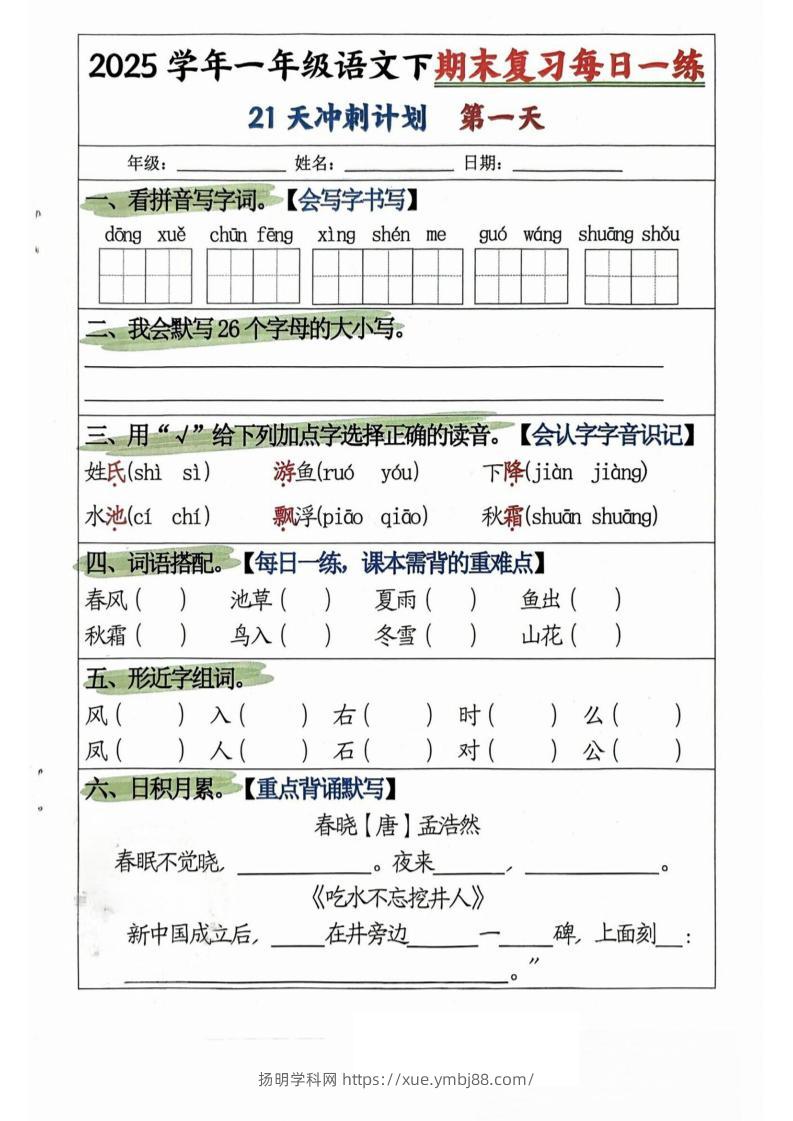 2025 学年一年级语文下期末复习每日一练
21 天冲刺计划 第一天
年级：________ 姓名：________ 日期：________
一、看拼音写字词。【会写字书写】
dōng xuě chūn fēng xìng shén me guó wáng shuāng shǒu
二、我会默写 26 个字母的大小写。
三、用“√”给下列加点字选择正确的读音。【会认字字音识记】
姓氏(shì sì) 游鱼(ruó yóu) 下降(jiàn jiàng)
水池(cí chí) 飘浮(piāo qiāo) 秋霜(shuān shuāng)
四、词语搭配。【每日一练，课本需背的重难点】
春风（ ） 池草（ ） 夏雨（ ） 鱼出（ ）
秋霜（ ） 鸟入（ ） 冬雪（ ） 山花（ ）
五、形近字组词。
风（ ） 入（ ） 右（ ） 时（ ） 么（ ）
凤（ ） 人（ ） 石（ ） 对（ ） 公（ ）
六、日积月累。【重点背诵默写】
春晓【唐】孟浩然
春眠不觉晓，________。夜来____，________。
《吃水不忘挖井人》
新中国成立后，____在井旁边____一____碑，上面刻__：
________________。”
扬明学科网 https://xue.ymbj88.com/